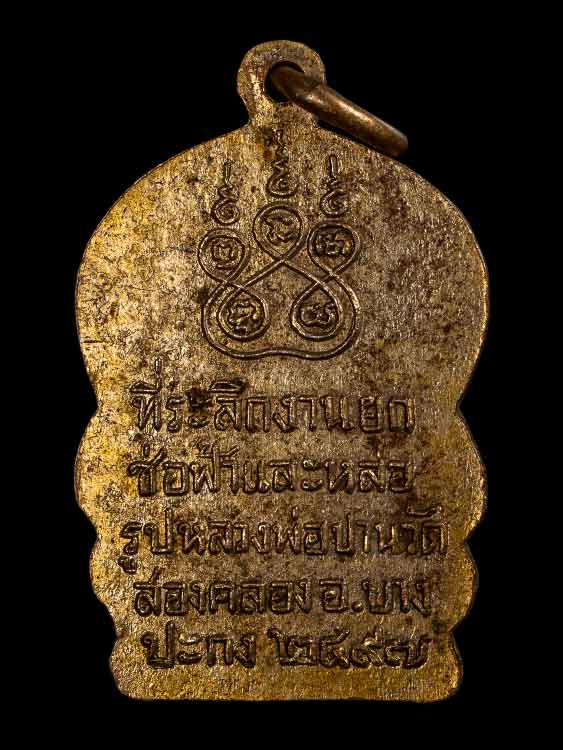 ที่ระลึกงานยก
ช่อฟ้าและหล่อ
รูปหลวงพ่อปานวัด
ส่องคลอง อ.บาง
ปะกง ๒๔๙๗